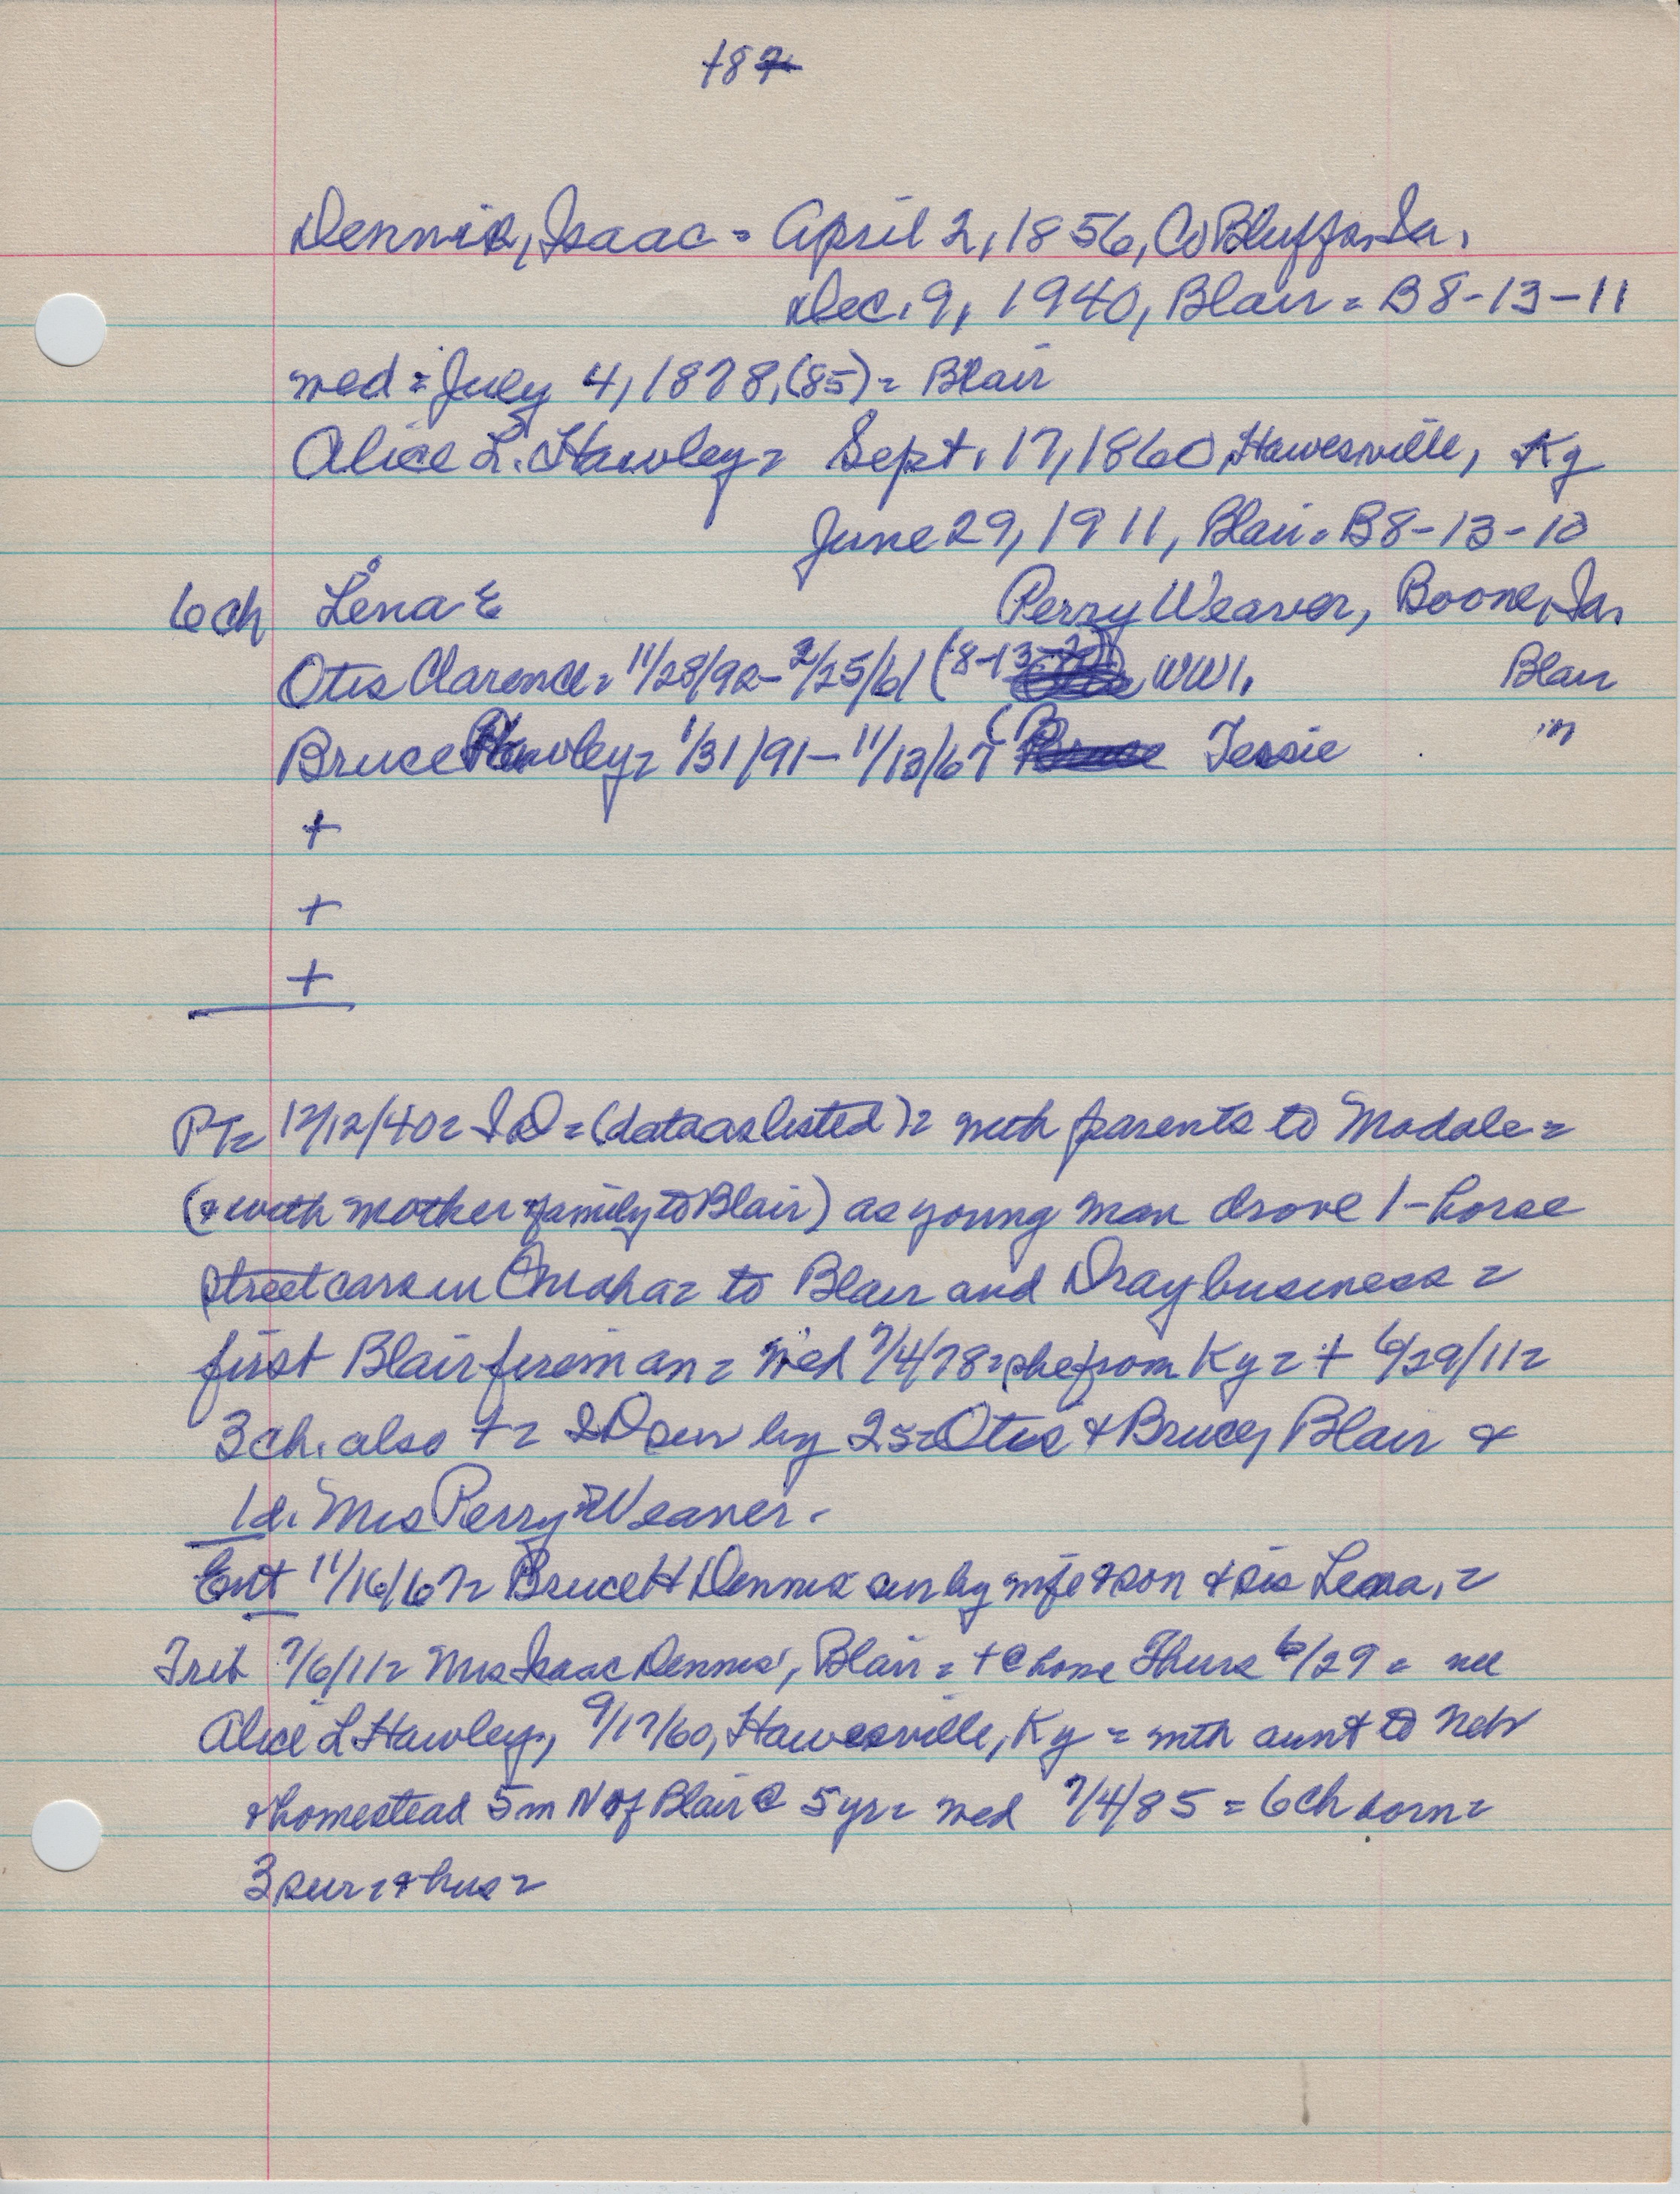 187
Dennis, Isaac = April 2, 1856, Co Bluffs, Ia.
Dec. 9, 1940, Blair = B8-13-11
wed = July 4, 1878, (85) = Blair
Alice L. Hawley = Sept. 17, 1860 Hawesville, Ky
June 29, 1911, Blair = B8-13-10
6 ch Lena E Perry Weaver, Boone, Ia.
Otis Clarence = 11/28/92 - 2/25/61 (8-13- WW1. Blair
Bruce Hawley = 1/31/91 - 11/13/67 (B Tessie "
+
+
+
PT = 12/12/40 = I D = (data as listed) = with parents to Modale =
(& with mother & family to Blair) as young man drove 1-horse
street cars in Omaha = to Blair and Dray business =
first Blair fireman = wed 7/4/78 = she from Ky = + 6/29/11 =
3 ch. also + = ID sur by 2s = Otis & Bruce, Blair &
1d. Mrs Perry Weaver.
Ent 11/16/67 = Bruce H Dennis sur by wife & son & sis Lena, =
Trib 7/6/11 = Mrs Isaac Dennis, Blair = + @ home Thurs 6/29 = nee
Alice L Hawley, 9/17/60, Hawesville, Ky = with aunt to Neb
& homestead 5m N of Blair @ 5yr = wed 7/4/85 = 6 ch born =
3 sur = & hus =